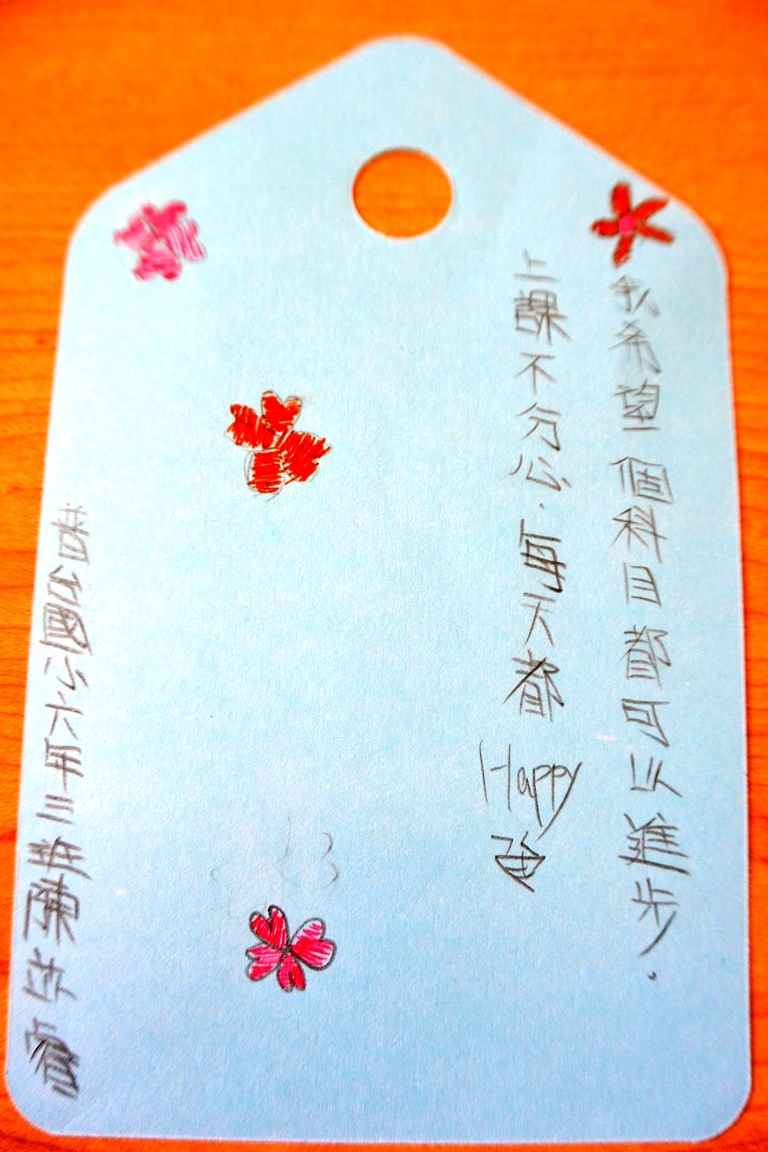 我希望個科目都可以進步.
上課不分心.每天都Happy
國小六年三班陳